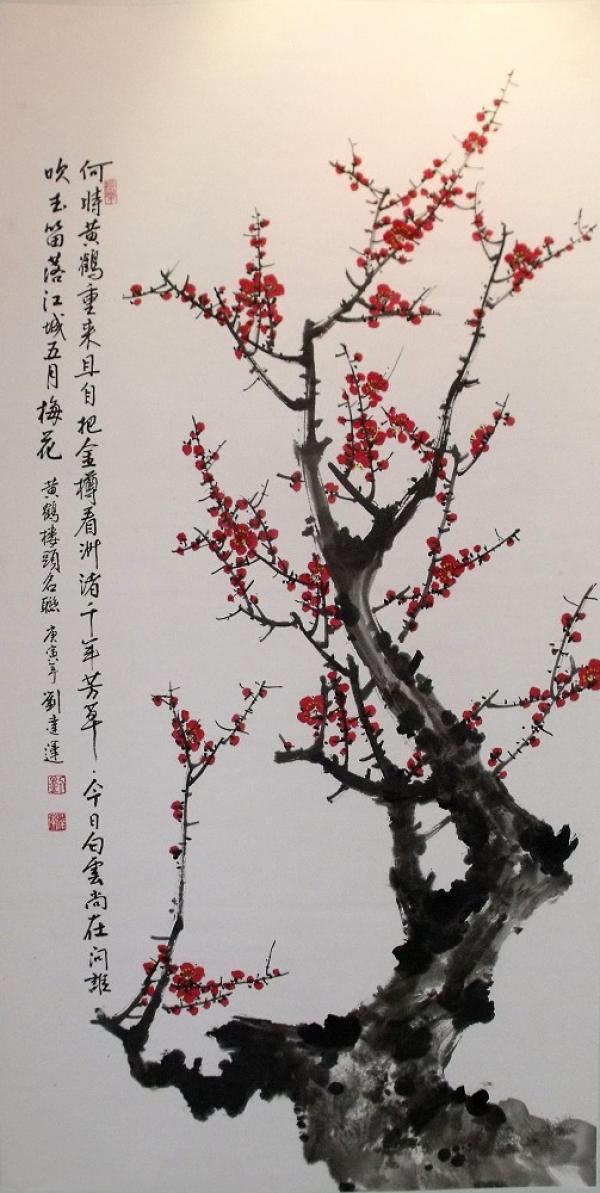 何時黄鶴重来且自把金樽看洲渚千年芳草今日白雲尚在问誰
吹玉笛落江城五月梅花 黄鶴楼頭名聯 庚寅年 劉達運